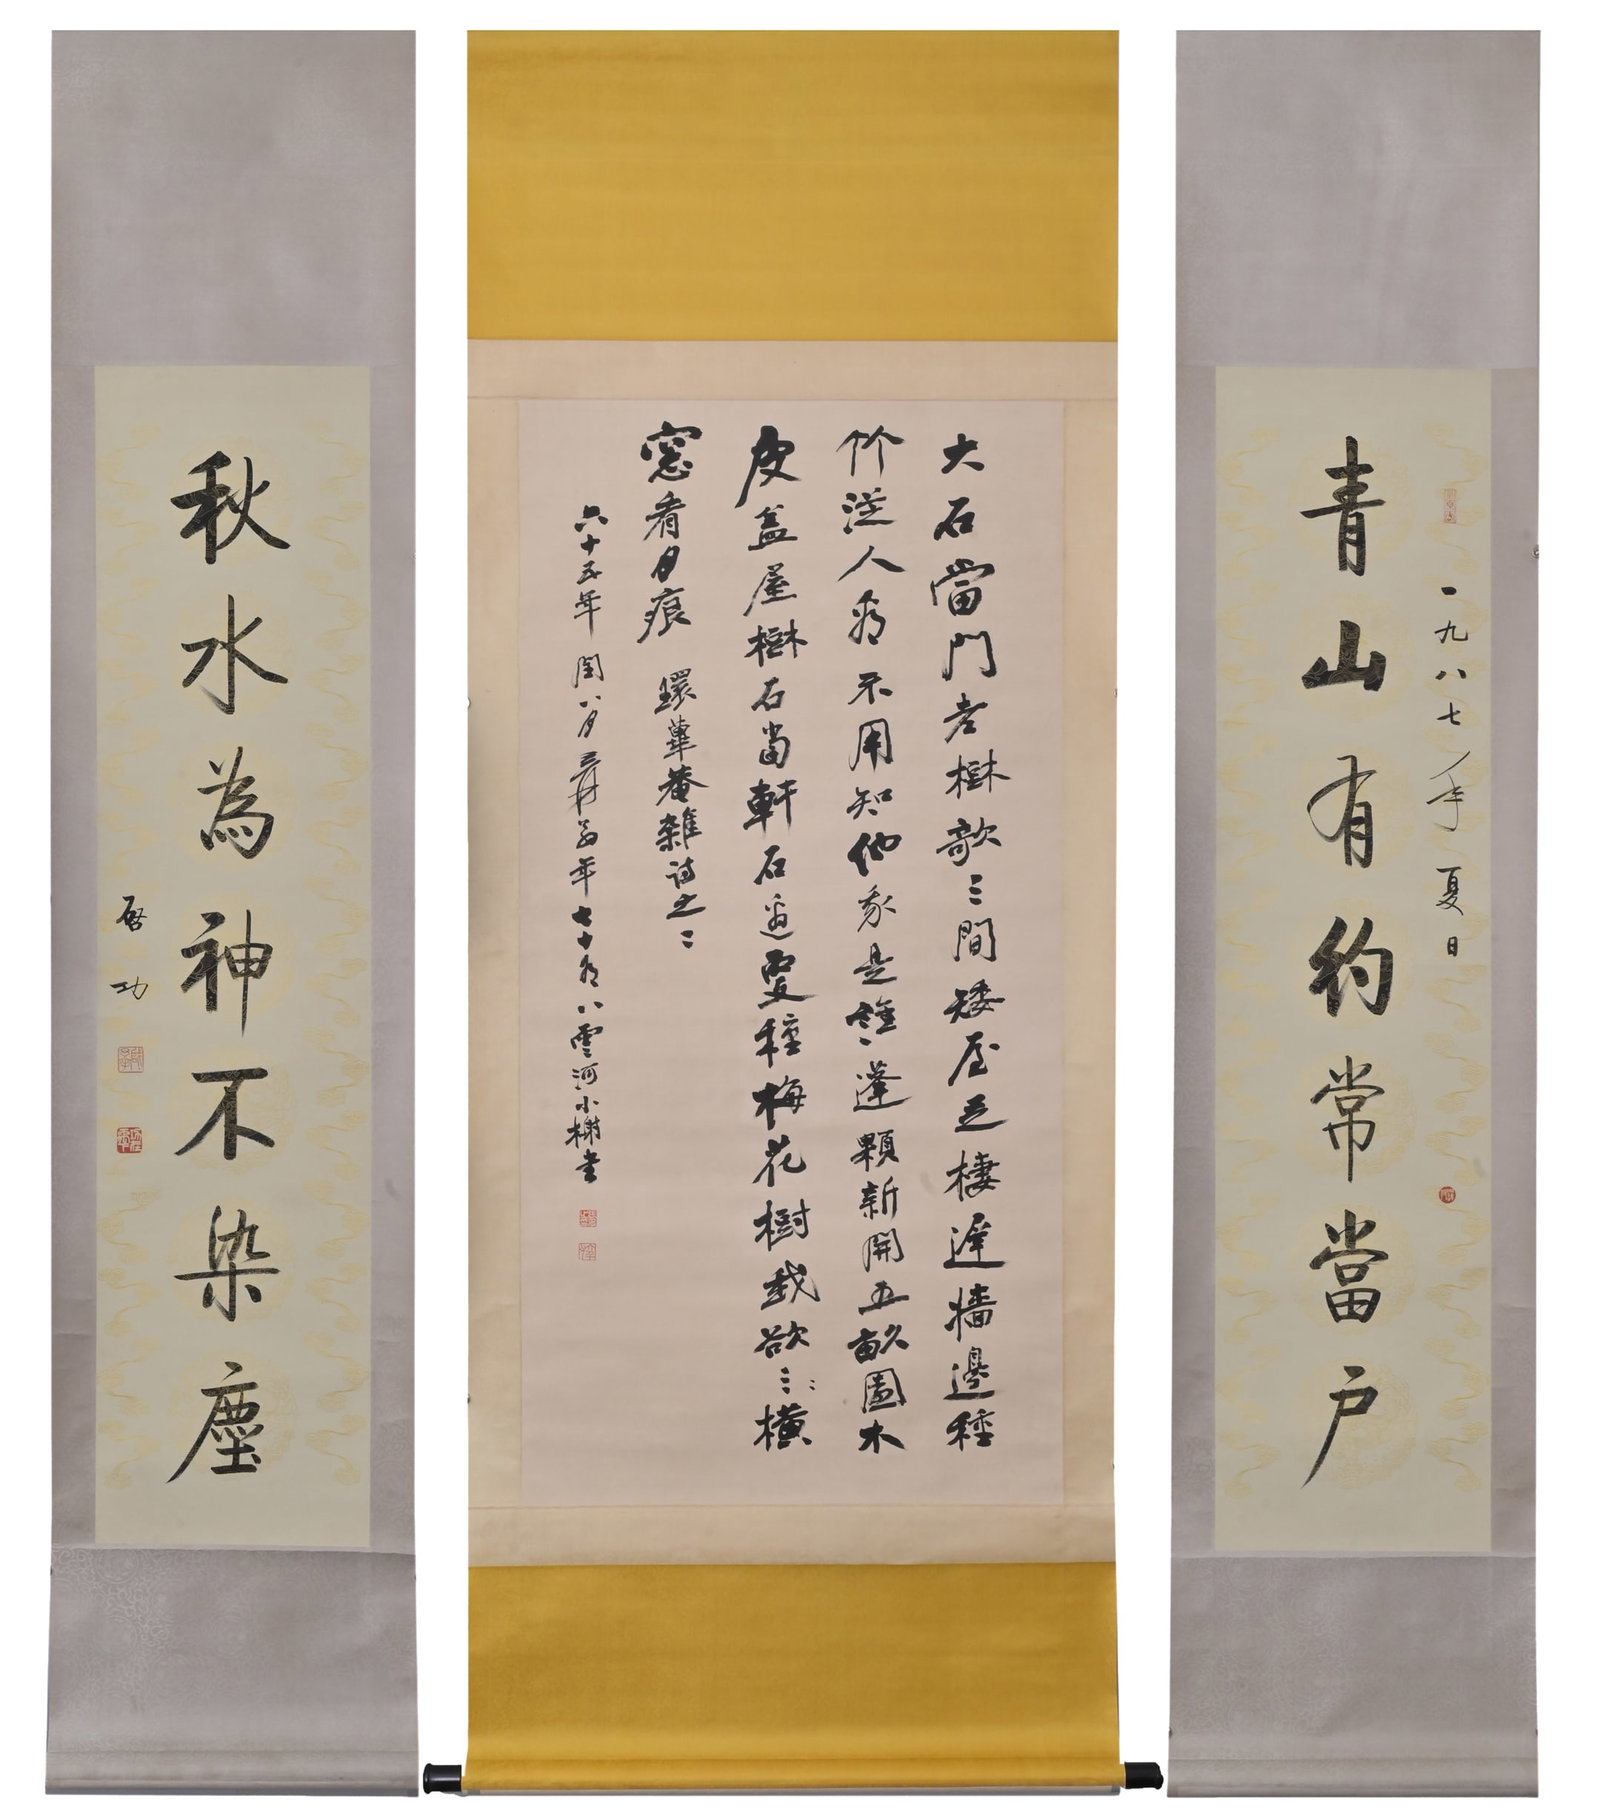 一九八七年夏日
青山有約常當戶
大石當門老樹欹三間矮屋足棲遲牆邊種
竹從人看不用知他家是誰蓬顆新開五畝園木
皮蓋屋樹石當軒石邊更種梅花樹我欲橫
窓看月痕 環蓽菴雜詩之二
六十五年閏八月爰翁年七十有八雲河小榭書
秋水為神不染塵
啟功